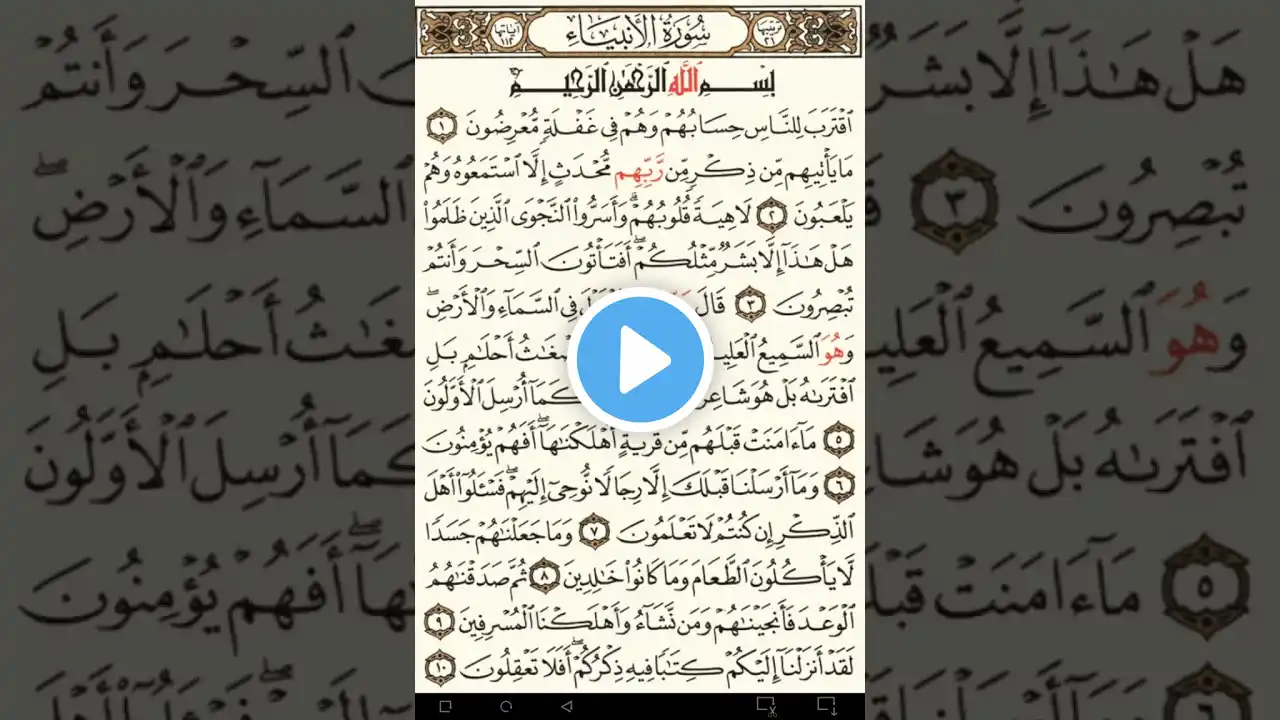 ترتيبها ٢١ سُورَةُ الأَنبِيَاءِ آياتها ١١٢
بِسْمِ اللَّهِ الرَّحْمَٰنِ الرَّحِيمِ
ٱقْتَرَبَ لِلنَّاسِ حِسَابُهُمْ وَهُمْ فِى غَفْلَةٍ مُّعْرِضُونَ ١
مَا يَأْتِيهِم مِّن ذِكْرٍ مِّن رَّبِّهِم مُّحْدَثٍ إِلَّا ٱسْتَمَعُوهُ وَهُمْ
يَلْعَبُونَ ٢ لَاهِيَةً قُلُوبُهُمْ ۗ وَأَسَرُّوا۟ ٱلنَّجْوَى ٱلَّذِينَ ظَلَمُوا۟
هَلْ هَٰذَآ إِلَّا بَشَرٌ مِّثْلُكُمْ ۖ أَفَتَأْتُونَ ٱلسِّحْرَ وَأَنتُمْ
تُبْصِرُونَ ٣ قَالَ فِى ٱلسَّمَآءِ وَٱلْأَرْضِ ۖ
وَهُوَ ٱلسَّمِيعُ أَحْلَٰمٍۭ بَلِ
ٱفْتَرَىٰهُ بَلْ هُوَ كَمَآ أُرْسِلَ ٱلْأَوَّلُونَ
٥ مَآ ءَامَنَتْ قَبْلَهُم مِّن قَرْيَةٍ أَهْلَكْنَٰهَآ ۖ أَفَهُمْ يُؤْمِنُونَ
٦ وَمَآ أَرْسَلْنَا قَبْلَكَ إِلَّا رِجَالًا نُّوحِىٓ إِلَيْهِمْ ۖ فَسْـَٔلُوٓا۟ أَهْلَ
ٱلذِّكْرِ إِن كُنتُمْ لَا تَعْلَمُونَ ٧ وَمَا جَعَلْنَٰهُمْ جَسَدًا
لَّا يَأْكُلُونَ ٱلطَّعَامَ وَمَا كَانُوا۟ خَٰلِدِينَ ٨ ثُمَّ صَدَقْنَٰهُمُ
ٱلْوَعْدَ فَأَنجَيْنَٰهُمْ وَمَن نَّشَآءُ وَأَهْلَكْنَا ٱلْمُسْرِفِينَ ٩
لَقَدْ أَنزَلْنَآ إِلَيْكُمْ كِتَٰبًا فِيهِ ذِكْرُكُمْ ۖ أَفَلَا تَعْقِلُونَ ١٠